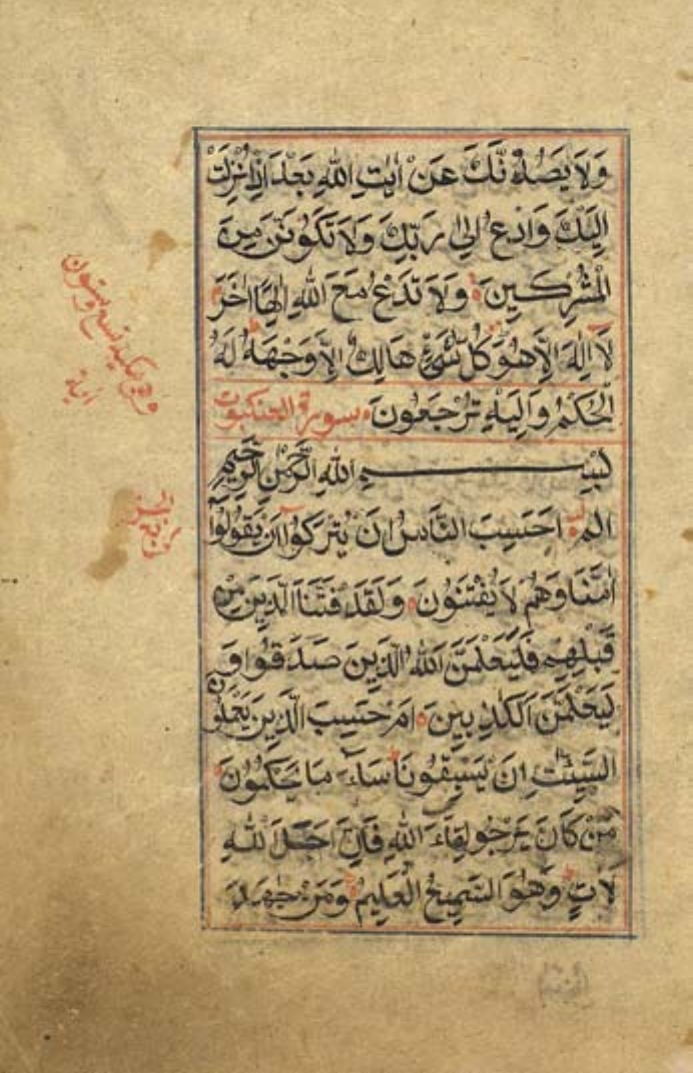 وَلَا يَصُدُّنَّكَ عَنْ اٰيٰتِ اللّٰهِ بَعْدَ اِذْ اُنْزِلَتْ
اِلَيْكَ وَادْعُ اِلٰى رَبِّكَ وَلَا تَكُوْنَنَّ مِنَ
الْمُشْرِكِيْنَ وَلَا تَدْعُ مَعَ اللّٰهِ اِلٰهًا اٰخَرَ
لَا اِلٰهَ اِلَّا هُوَ كُلُّ شَيْءٍ هَالِكٌ اِلَّا وَجْهَهٗ لَهُ
الْحُكْمُ وَاِلَيْهِ تُرْجَعُوْنَ سورة العنكبوت
بِسْمِ اللّٰهِ الرَّحْمٰنِ الرَّحِيْمِ
الم اَحَسِبَ النَّاسُ اَنْ يُتْرَكُوْا اَنْ يَقُوْلُوْا
اٰمَنَّا وَهُمْ لَا يُفْتَنُوْنَ وَلَقَدْ فَتَنَّا الَّذِيْنَ مِنْ
قَبْلِهِمْ فَلَيَعْلَمَنَّ اللّٰهُ الَّذِيْنَ صَدَقُوْا وَ
لَيَعْلَمَنَّ الْكٰذِبِيْنَ اَمْ حَسِبَ الَّذِيْنَ يَعْمَلُوْنَ
السَّيِّئٰتِ اَنْ يَسْبِقُوْنَا سَاءَ مَا يَحْكُمُوْنَ
مَنْ كَانَ يَرْجُوْ لِقَاءَ اللّٰهِ فَاِنَّ اَجَلَ اللّٰهِ
لَاٰتٍ وَهُوَ السَّمِيْعُ الْعَلِيْمُ وَمَنْ جٰهَدَ